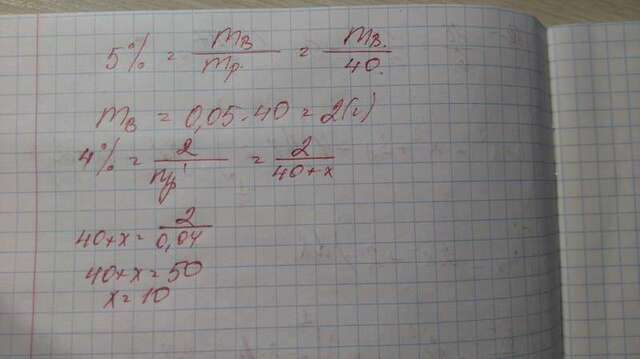 5% = mв / mр = mв. / 40.
mв = 0,05·40 = 2(г)
4% = 2 / mр' = 2 / 40+x
40+x = 2 / 0,04
40+x = 50
x = 10